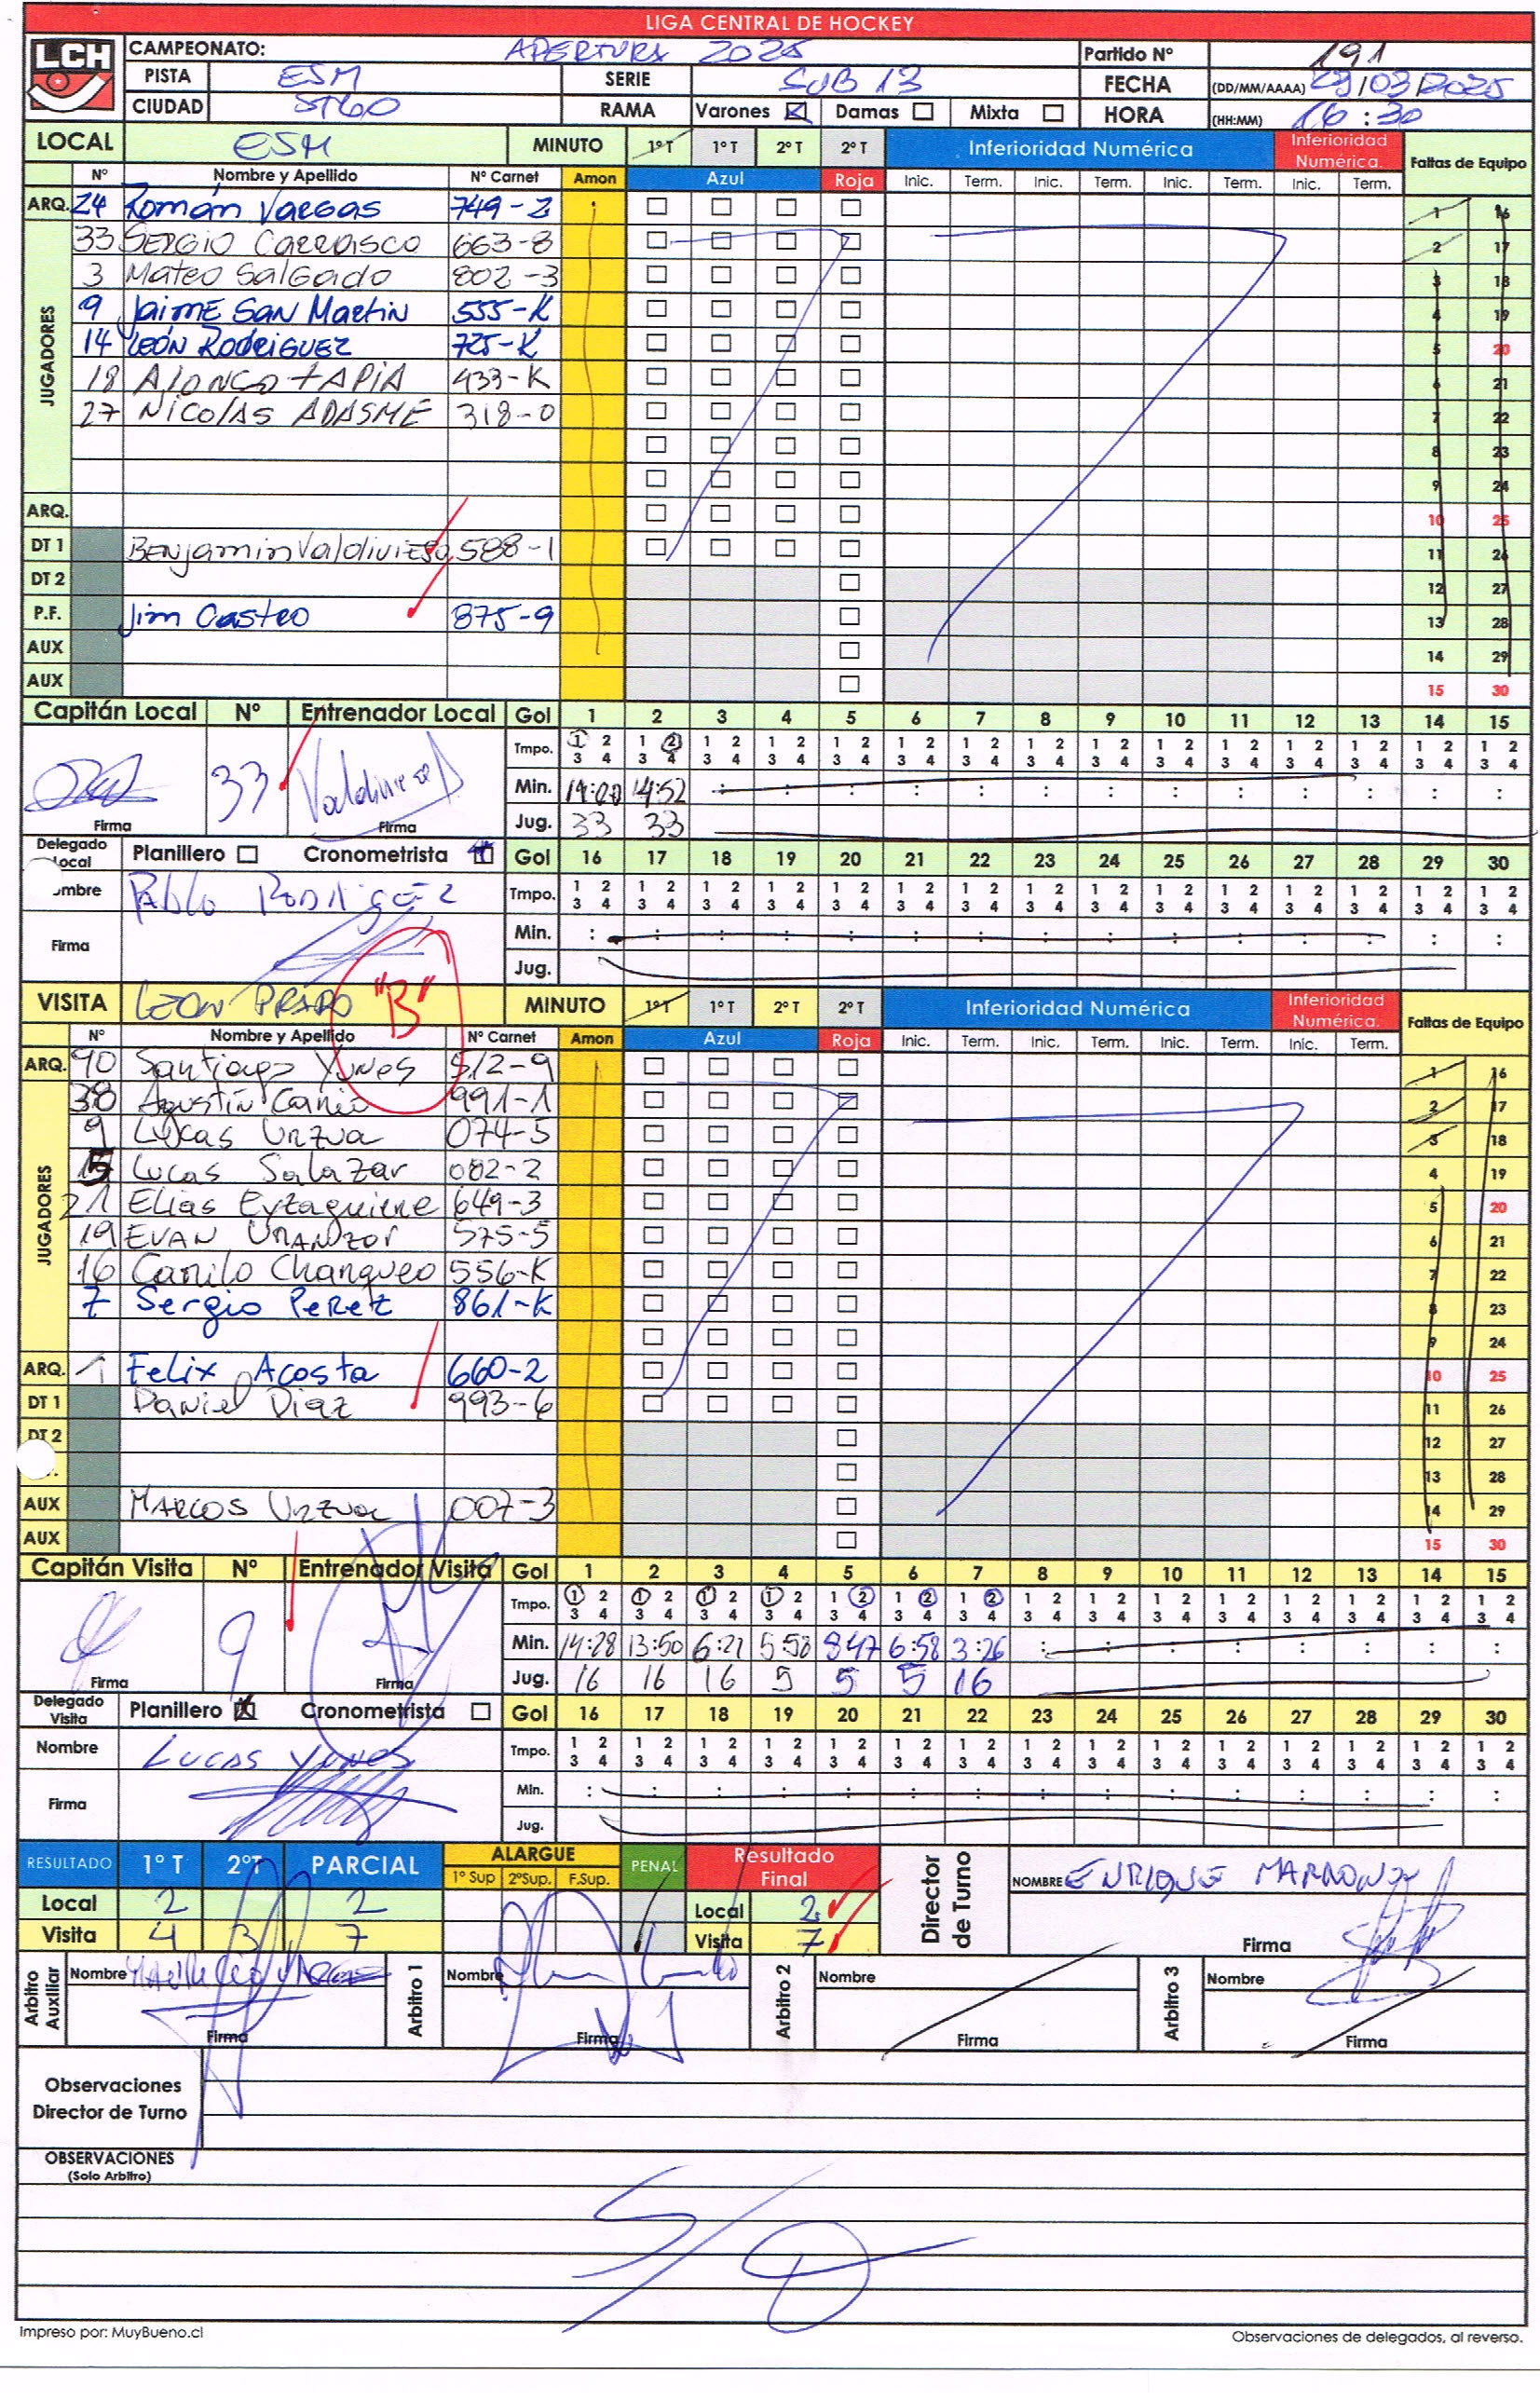 LIGA CENTRAL DE HOCKEY
LCH
CAMPEONATO: APERTURA 2025 Partido Nº 191
PISTA ESM SERIE SUB 13 FECHA (DD/MM/AAAA) 29/03/2025
CIUDAD STGO RAMA Varones Damas Mixta HORA (HH:MM) 16:30
LOCAL ESM MINUTO 1º T 1º T 2º T 2º T Inferioridad Numérica Inferioridad Numérica. Faltas de Equipo
Nº Nombre y Apellido Nº Carnet Amon Azul Roja Inic. Term. Inic. Term. Inic. Term. Inic. Term.
ARQ. 24 Román Vargas 749-2 1 16
JUGADORES
33 SERGIO Carrasco 663-8 2 17
3 Mateo Salgado 802-3 3 18
9 Jaime San Martin 555-K 4 19
14 LEÓN RodriGUEZ 725-K 5 20
18 Alonso tAPIA 433-K 6 21
27 NicolAs ADASME 318-0 7 22
8 23
9 24
ARQ. 10 25
DT 1 BENjamin Valdivieso 588-1 11 26
DT 2 12 27
P.F. Jim Castro 875-9 13 28
AUX 14 29
AUX 15 30
Capitán Local Nº Entrenador Local Gol 1 2 3 4 5 6 7 8 9 10 11 12 13 14 15
Tmpo. 1 2 1 2 1 2 1 2 1 2 1 2 1 2 1 2 1 2 1 2 1 2 1 2 1 2 1 2 1 2
3 4 3 4 3 4 3 4 3 4 3 4 3 4 3 4 3 4 3 4 3 4 3 4 3 4 3 4 3 4
33 Valdivieso Min. 14:52
Firma Firma Jug. 33 33
Delegado Local Planillero Cronometrista Gol 16 17 18 19 20 21 22 23 24 25 26 27 28 29 30
Pablo Rodriguez Tmpo. 1 2 1 2 1 2 1 2 1 2 1 2 1 2 1 2 1 2 1 2 1 2 1 2 1 2 1 2 1 2
3 4 3 4 3 4 3 4 3 4 3 4 3 4 3 4 3 4 3 4 3 4 3 4 3 4 3 4 3 4
Firma Min.
Jug.
VISITA LEON PRADO "B" MINUTO 1º T 1º T 2º T 2º T Inferioridad Numérica Inferioridad Numérica. Faltas de Equipo
Nº Nombre y Apellido Nº Carnet Amon Azul Roja Inic. Term. Inic. Term. Inic. Term. Inic. Term.
ARQ. 90 Santiago Yunes 512-9 1 16
JUGADORES
38 Agustín 991-1 2 17
9 Lucas Urzua 074-5 3 18
5 Lucas Salazar 002-2 4 19
21 Elías Eyzaguirre 649-3 5 20
19 EVAN 575-5 6 21
16 Camilo Changueo 556-K 7 22
7 Sergio Perez 861-K 8 23
9 24
ARQ. 1 Felix Acosta 660-2 10 25
DT 1 Daniel Diaz 993-6 11 26
DT 2 12 27
13 28
AUX MARCOS Urzua 007-3 14 29
AUX 15 30
Capitán Visita Nº Entrenador Visita Gol 1 2 3 4 5 6 7 8 9 10 11 12 13 14 15
Tmpo. 1 2 1 2 1 2 1 2 1 2 1 2 1 2 1 2 1 2 1 2 1 2 1 2 1 2 1 2 1 2
3 4 3 4 3 4 3 4 3 4 3 4 3 4 3 4 3 4 3 4 3 4 3 4 3 4 3 4 3 4
9 Min. 14:28 13:50 6:21 5:58 9:47 6:58 3:26
Firma Firma Jug. 16 16 16 5 5 5 16
Delegado Visita Planillero Cronometrista Gol 16 17 18 19 20 21 22 23 24 25 26 27 28 29 30
Nombre LUCAS YUNES Tmpo. 1 2 1 2 1 2 1 2 1 2 1 2 1 2 1 2 1 2 1 2 1 2 1 2 1 2 1 2 1 2
3 4 3 4 3 4 3 4 3 4 3 4 3 4 3 4 3 4 3 4 3 4 3 4 3 4 3 4 3 4
Firma Min.
Jug.
RESULTADO 1º T 2º T PARCIAL ALARGUE PENAL Resultado Final Director de Turno NOMBRE ENRIQUE
1º Sup 2ºSup. F.Sup.
Local 2 2 Local 2
Visita 4 3 7 Visita 7 Firma
Arbitro Auxiliar Nombre Arbitro 1 Nombre Arbitro 2 Nombre Arbitro 3 Nombre
Firma Firma Firma Firma
Observaciones
Director de Turno
OBSERVACIONES
(Solo Arbitro)
S/O
Impreso por: MuyBueno.cl Observaciones de delegados, al reverso.